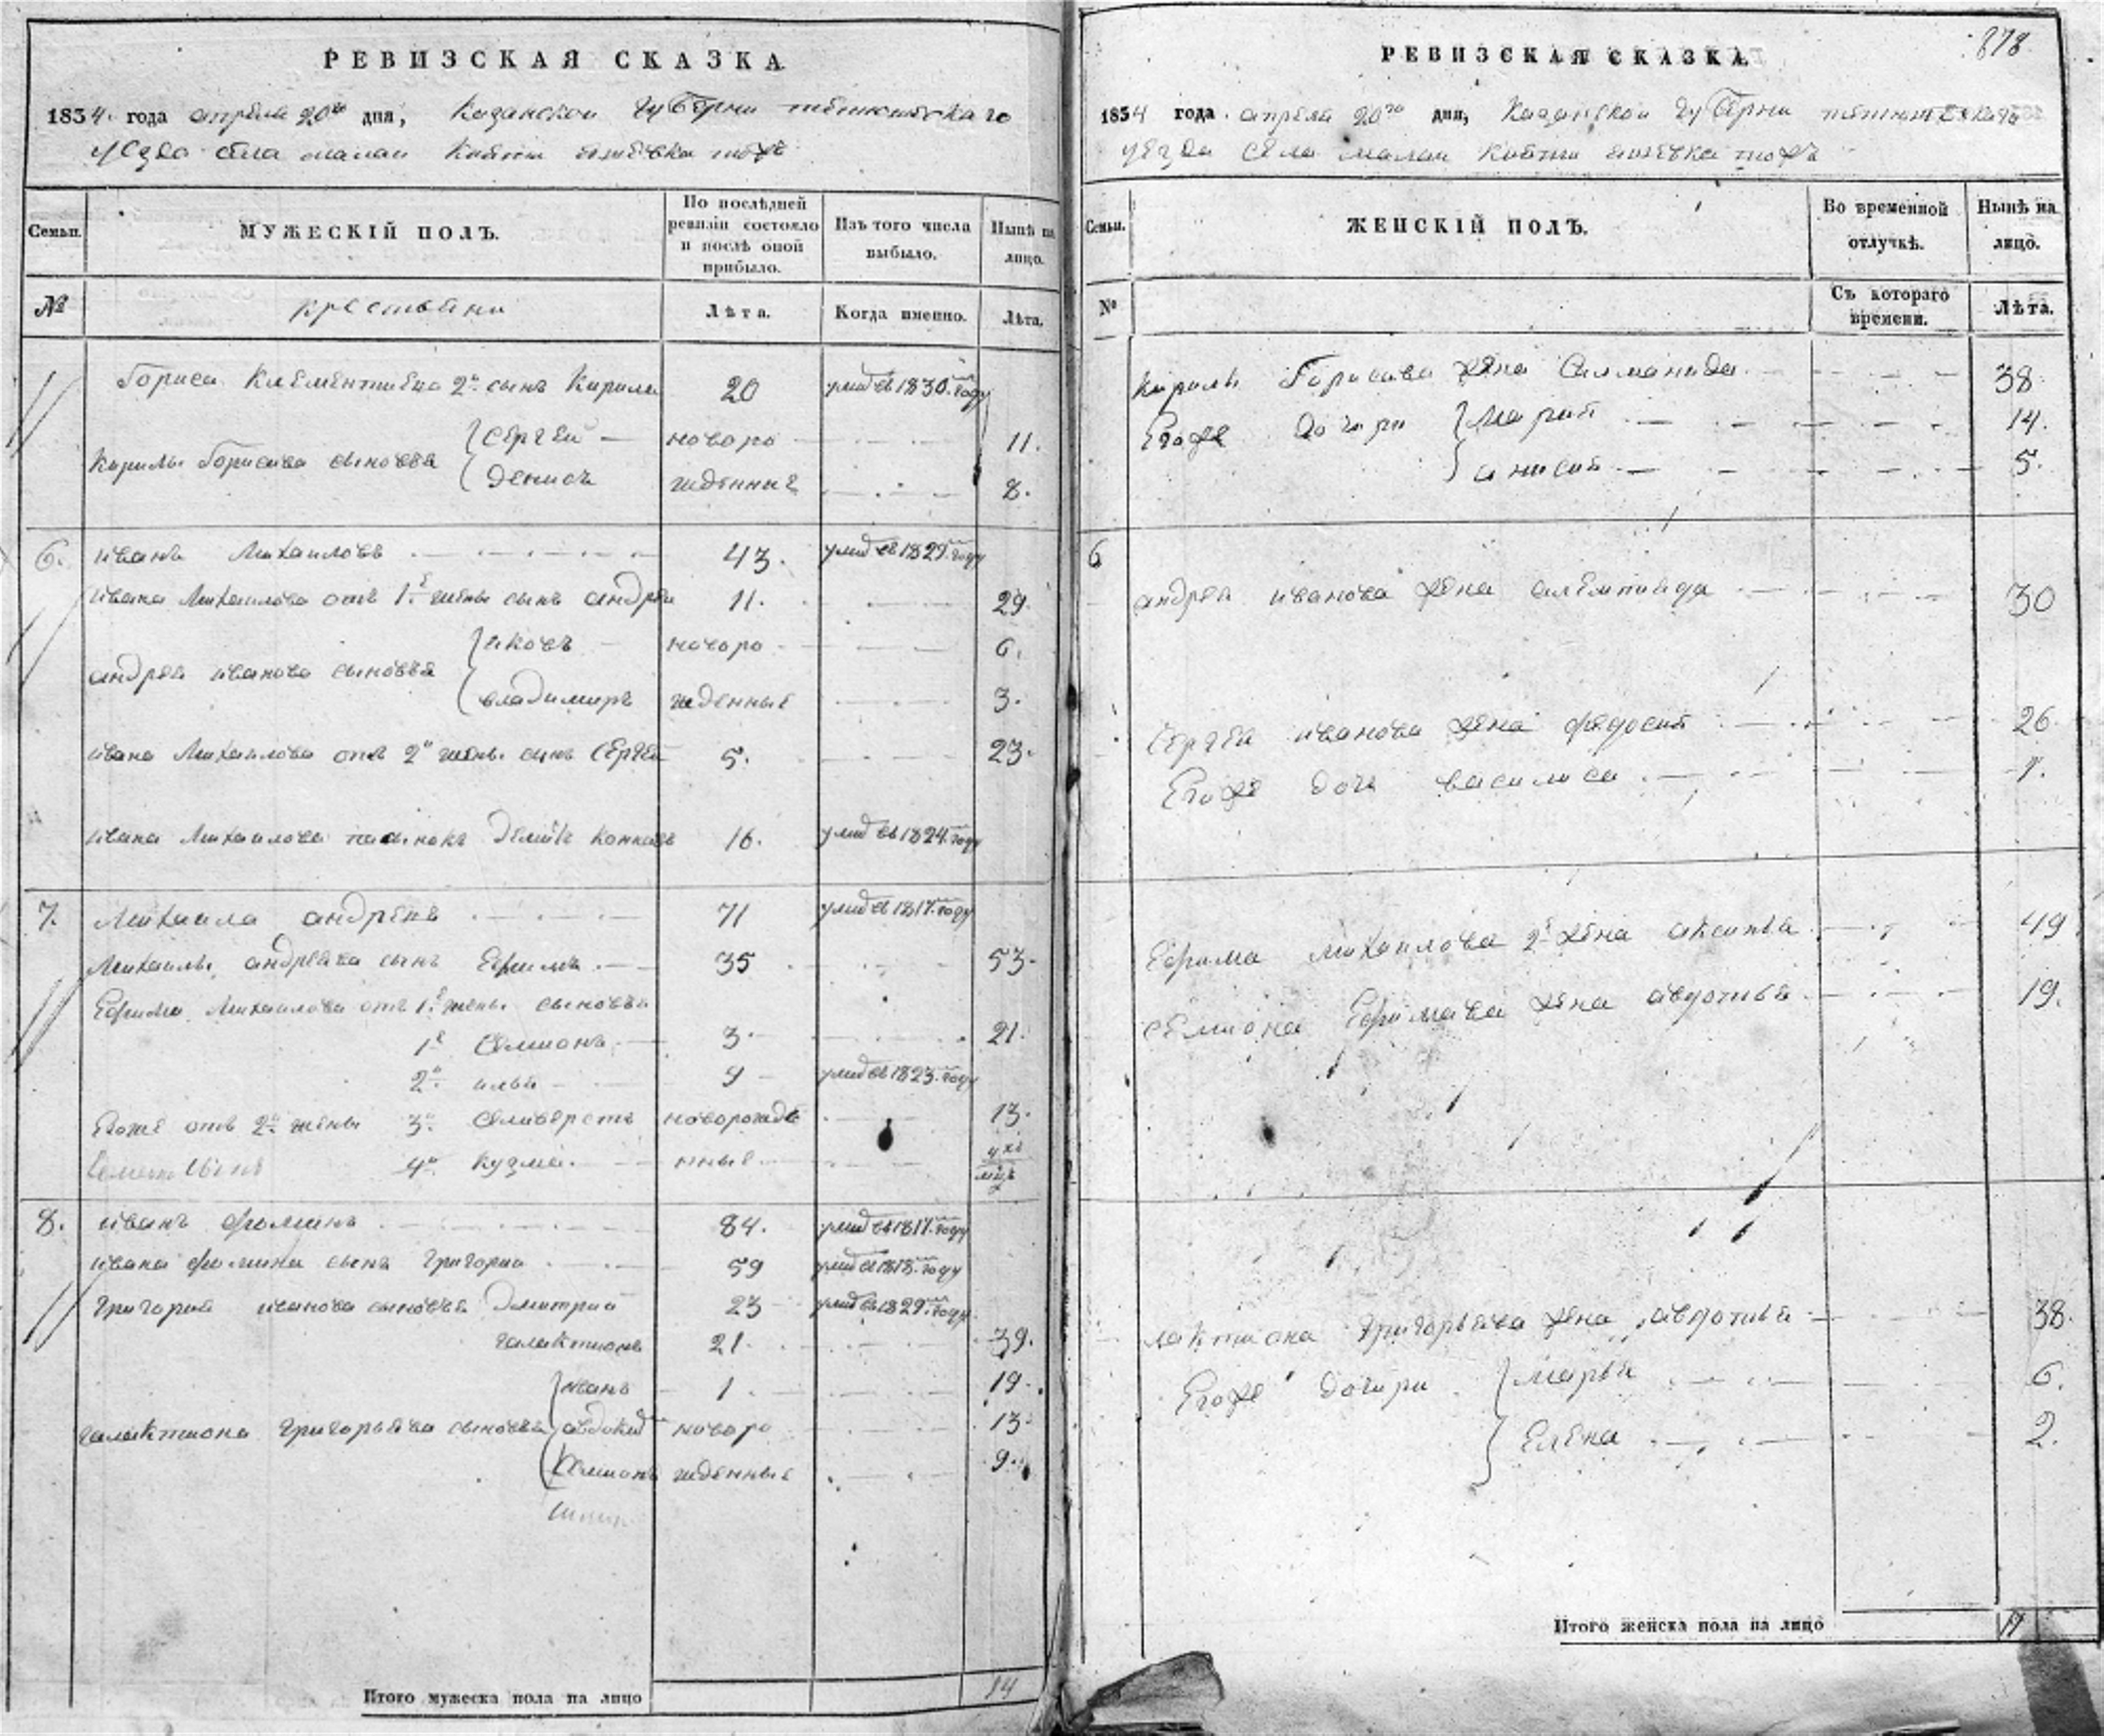 РЕВИЗСКАЯ СКАЗКА
1834 года апреля 20го дня, Казанской Губерни
уезда села малаи
Семьи.
МУЖЕСКІЙ ПОЛЪ.
По послѣдней ревизіи состояло и послѣ оной прибыло.
Изъ того числа выбыло.
Нынѣ на лицо.
№
крестьяни
Лѣта.
Когда именно.
Лѣта.
Бориса Клементиева 2й сынъ Кирила 20 умид въ 1830м году
Кирилы Борисова сыновья
Сергеи — новоро 11.
Денисъ жденные 8.
6. иванъ Михаиловъ 43. умид въ 1829м году
ивана Михаилова отъ 1й жены сынъ андреи 11. 29
андрея иванова сыновья
яковъ новоро 6.
владимиръ жденные 3.
ивана Михаилова отъ 2й жены сынъ Сергеи 5. 23.
ивана Михаилова пасынокъ 16. умид въ 1824м году
7. Михаила андреевъ 71 умид въ 1817м году
Михаилы андреева сынъ Ефимъ 35 53.
Ефима Михаилова отъ 1й жены сыновья
1й Семионъ 3. 21.
2й илья 9 умид въ 1823м году
Егоже отъ 2й жены 3й Селиверстъ новорожде 13.
4й кузма. нные 4хъ мцъ
8. иванъ фоминъ 84. умид въ 1817м году
ивана фомина сынъ григореи 59 умид въ 1818м году
григория иванова сыновья Дмитрии 23 умид въ 1829м году
галактионъ 21. 39.
иванъ 1. 19.
галактиона григорьева сыновья авдоким новоро 13.
Семионъ жденные 9.
Итого мужеска пола на лицо 14
878
РЕВИЗСКАЯ СКАЗКА
1834 года апреля 20го дня, Казанской Губерни
уезда села малаи
Семьи.
ЖЕНСКІЙ ПОЛЪ.
Во временной отлучкѣ.
Нынѣ на лицо.
№
Съ котораго времени.
Лѣта.
Кирилы Борисова жена Саламанида 38
Егоже дочери
мария 14.
анисия 5.
6
андрея иванова жена 30
Сергея иванова жена федосия 26
Егоже дочь василиса 1.
Ефима михаилова 2й жена аксинья 49
Семиона Ефимова жена авдотья 19.
лактиона григорьева жена авдотья 38.
Егоже дочери
марья 6.
Елена 2.
Итого женска пола на лицо 11